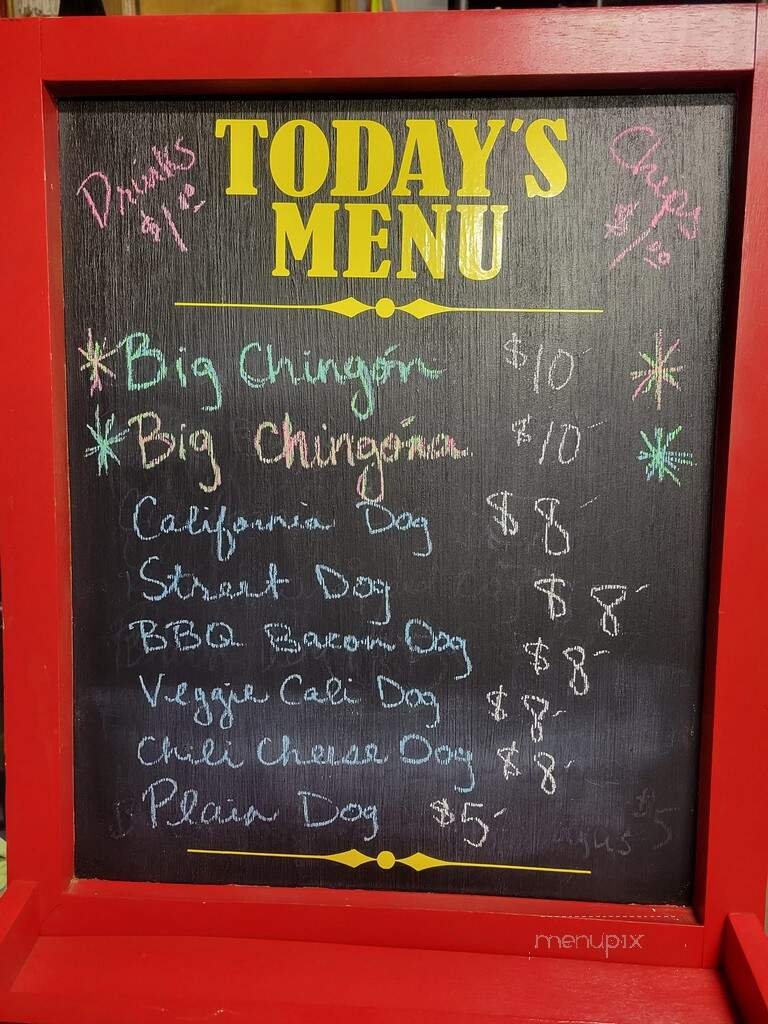 Drinks
$1.50
TODAY'S
MENU
Chips
$1.50
Big Chingón $10
Big Chingóna $10
California Dog $8
Street Dog $8
BBQ Bacon Dog $8
Veggie Cali Dog $8
Chili Cheese Dog $8
Plain Dog $5
$5
menupix